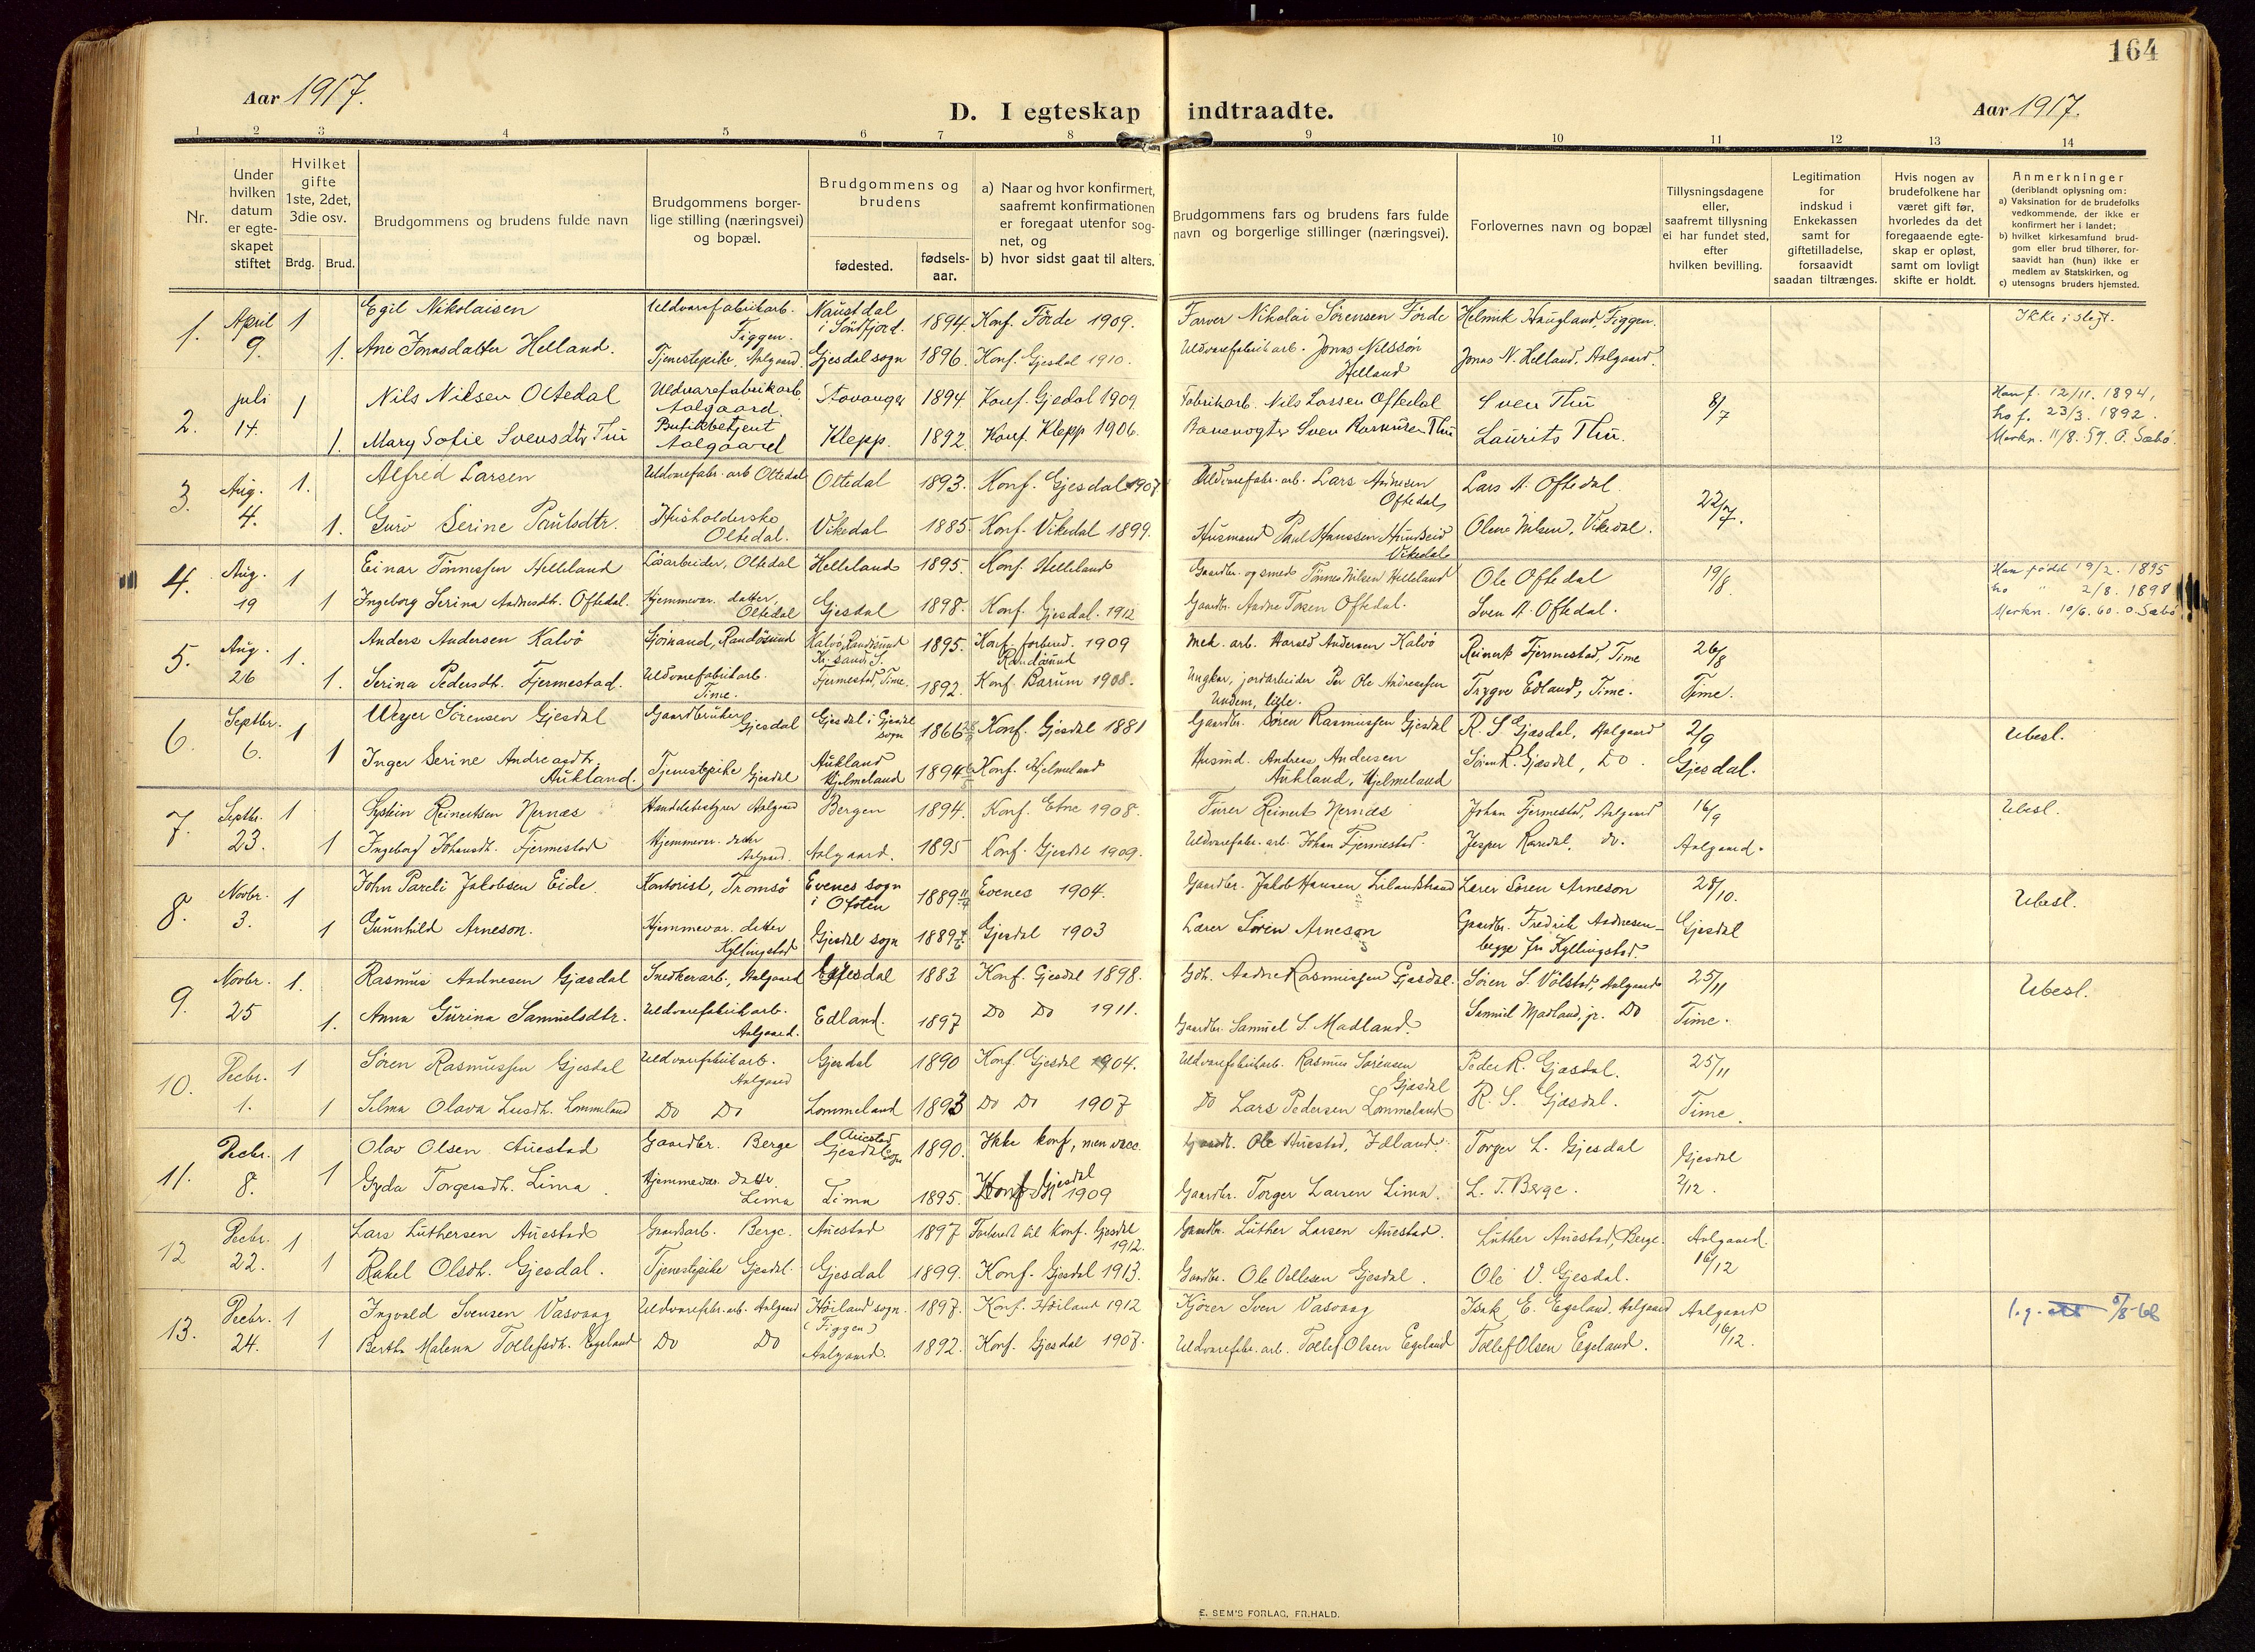 164
Aar 1917.
D. I egteskap indtraadte.
Aar 1917.
1 2 3 4 5 6 7 8 9 10 11 12 13 14
Nr.
Under hvilken datum er egte-skapet stiftet
Hvilket gifte 1ste, 2det, 3die osv.
Brdg. Brud.
Brudgommens og brudens fulde navn
Brudgommens borger-lige stilling (næringsvei) og bopæl.
Brudgommens og brudens
fødested.
fødsels-aar.
a) Naar og hvor konfirmert, saafremt konfirmationen er foregaat utenfor sog-net, og
b) hvor sidst gaat til alters.
Brudgommens fars og brudens fars fulde navn og borgerlige stillinger (næringsvei).
Forlovernes navn og bopæl
Tillysningsdagene eller, saafremt tillysning ei har fundet sted, efter hvilken bevilling.
Legitimation for indskud i Enkekassen samt for giftetilladelse, forsaavidt saadan tiltrænges.
Hvis nogen av brudefolkene har været gift før, hvorledes da det foregaaende egte-skap er opløst, samt om lovligt skifte er holdt.
Anmerkninger
(deriblandt oplysning om:
a) Vaksination for de brudefolks vedkommende, der ikke er konfirmert her i landet;
b) hvilket kirkesamfund brud-gom eller brud tilhører, for-saavidt han (hun) ikke er medlem av Statskirken, og
c) utensogns bruders hjemsted.
1. April 9. 1 Egil Nikolaisen Uldvarefabrikarb. Figgen. Naustdal i Söndfjord. 1894 Konf. Förde 1909. Farver Nikolai Sörensen Förde Helmik Haugland, Figgen. Ikke i slegt.
1. Ane Jonasdatter Helland. Tjenestepike, Aalgaard. Gjesdal sogn 1896. Konf. Gjesdal 1910. Uldvarefabrikarb. Jonas Nilssön Helland Jonas N. Helland, Aalgaard.
2. juli 14. 1 Nils Nilsen Oltedal Uldvarefabrikarb. Aalgaard. Stavanger 1894 Konf. Gjedal 1909 Fabrikarb. Nils Larsen Oftedal Sven Thu 8/7 Han f. 12/11. 1894,
ho f. 23/3. 1892.
1. Mary Sofie Svensdtr Thu Butikbetjent Aalgaard Klepp. 1892. Konf. Klepp 1906. Banevogter Sven Rasmusen Thu Laurits Thu. Merkn. 11/8. 59. O. Sæbö.
3. Aug. 4. 1. Alfred Larsen Uldvarefabr. arb Oltedal Oltedal 1893. Konf. Gjesdal 1907 Uldvarefabr. arb. Lars Andresen Oftedal Lars A. Oftedal 22/7.
1. Guro Serine Paulsdtr. Husholderske Oltedal. Vikedal 1885. Konf. Vikedal 1899. Husmand Paul Hanssen Vikedal Olene Nilsen, Vikedal.
4. Aug. 19 1 Einar Tönnessen Helleland Lösarbeider, Oltedal Helleland 1895. Konf. Helleland Gaardbr. og smed Tönnes Nilsen Helleland Ole Oftedal 19/8. Han född 19/2. 1895
ho " 2/8. 1898
1 Ingeborg Serina Aadnesdtr. Oftedal. Hjemmevær. datter, Oltedal Gjesdal 1898. Konf. Gjesdal. 1912 Gaardbr. Aadne Tosen Oftedal. Sven A. Oftedal. Merkn. 10/6. 60. O. Sæbö
5. Aug. 26 1. Anders Andersen Kalvö Sjömand, Randösund Kalvö, Randösund Kr.sand S. 1895. Konf. forbered. 1909 Randösund Mek. arb. Harald Andersen Kalvö Reinert Fjermestad, Time 26/8
1. Serina Pedersdtr. Fjermestad. Uldvarefabrikarb. Time. Fjermestad, Time. 1892. Konf. Bærum 1908. Ungkar, jordarbeider Per Ole Andreassen Undem, Trygve Edland, Time. Time.
6. Septbr. 6. 1 Weyer Sörensen Gjesdal Gaardbruker Gjesdal Gjesdal i Gjesdal sogn 1866 Konf. Gjesdal 1881 Gaardbr. Sören Rasmussen Gjesdal R. S. Gjæsdal, Aalgaard 2/9 Ubesl.
1 Inger Serine Andreasdtr. Aukland. Tjenestepike Gjesdal Aukland Hjelmeland 1894 Konf. Hjelmeland Husmd. Andreas Andersen Aukland, Hjelmeland Sören R. Gjæsdal, Do. Gjesdal.
7. Septbr. 23. 1 Reinertsen Nernæs Handelsbestyrer Aalgaard Bergen 1894. Konf. Etne 1908. Reinert Nernæs Johan Fjermestad, Aalgaard 16/9 Ubesl.
1 Ingeborg Johansdtr. Fjermestad Hjemmevær. datter Aalgaard. Aalgaard. 1895 Konf. Gjesdal 1909. Uldvarefabr. arb. Johan Fjermestad. Jesper do. Aalgaard.
8. Novbr. 3. 1 John Pareli Jakobsen Eide. Kontorist, Tromsö Evenes sogn i Ofoten 1889 Evenes 1904. Gaardbr. Jakob Hansen Lilandstrand Lærer Sören Arneson 28/10. Ubesl.
1 Gunnhild Arneson. Hjemmevær. datter Kyllingstad Gjesdal sogn 1889 Gjesdal 1903 Lærer Sören Arneson Gaardbr. Fredrik Aadnesen begge fra Kyllingstad. Gjesdal
9. Novbr. 25 1. Rasmus Aadnesen Gjæsdal Snedkerarb., Aalgaard Gjesdal 1883 Konf. Gjesdal 1898. Gdbr. Aadne Rasmussen Gjæsdal. Sören S. Völstad, Aalgaard 25/11 Ubesl.
1. Anna Gurina Samuelsdtr. Uldvarefabrikarb. Aalgaard. Edland. 1897 Do Do 1911. Gaardbr. Samuel S. Madland. Samuel Madland, jr. Do Time.
10. Decbr. 1. 1 Sören Rasmussen Gjesdal Uldvarefabrikarb. Aalgaard Gjesdal 1890 Konf. Gjesdal 1904. Uldvarefabrikarb. Rasmus Sörensen Gjæsdal Peder R. Gjæsdal. 25/11
1 Selma Olava Larsdtr. Lommeland Do Do Lommeland 1893 Do Do 1907 Do Lars Pedersen Lommeland R. S. Gjæsdal. Time.
11. Decbr. 8. 1 Olav Olsen Auestad Gaardbr. Berge Auestad Gjesdal sogn 1890. Ikke konf, men vacc. Gaardb. Ole Auestad, Torger L. Gjesdal Gjesdal
1 Gyda Torgersdtr. Lima. Hjemmevær. datter Lima Lima 1895. Konf. Gjesdal 1909 Gaardbr. Torger Larsen Lima. L. T. Berge. 2/12.
12 Decbr. 22. 1 Lars Luthersen Auestad Gaardsarb. Berge. Auestad 1897 Forberedt til Konf. Gjesdal 1912. Gaardbr. Luther Larsen Auestad. Luther Auestad, Berge. Aalgaard.
1 Rakel Olsdtr. Gjesdal. Tjenestepike Gjesdal. Gjesdal 1899. Konf. Gjesdal 1913. Gaardbr. Ole Gjesdal. Ole V. Gjesdal. 16/12
13. Decbr. 24. 1 Ingvald Svensen Vasvaag Uldvarefabr. arb. Aalgaard Höiland sogn. (Figgen) 1897. Konf. Höiland 1912 Kjörer Sven Vasvaag Isak E. Egeland. Aalgaard Aalgaard 5/8-68
1 Berthe Malena Tollefsdtr. Egeland Do Do Aalgaard. 1892. Konf. Gjesdal 1907. Uldvarefabr. arb. Tollef Olsen Egeland Tollef Olsen Egeland. 16/12.
E. SEM'S FORLAG, FR.HALD.